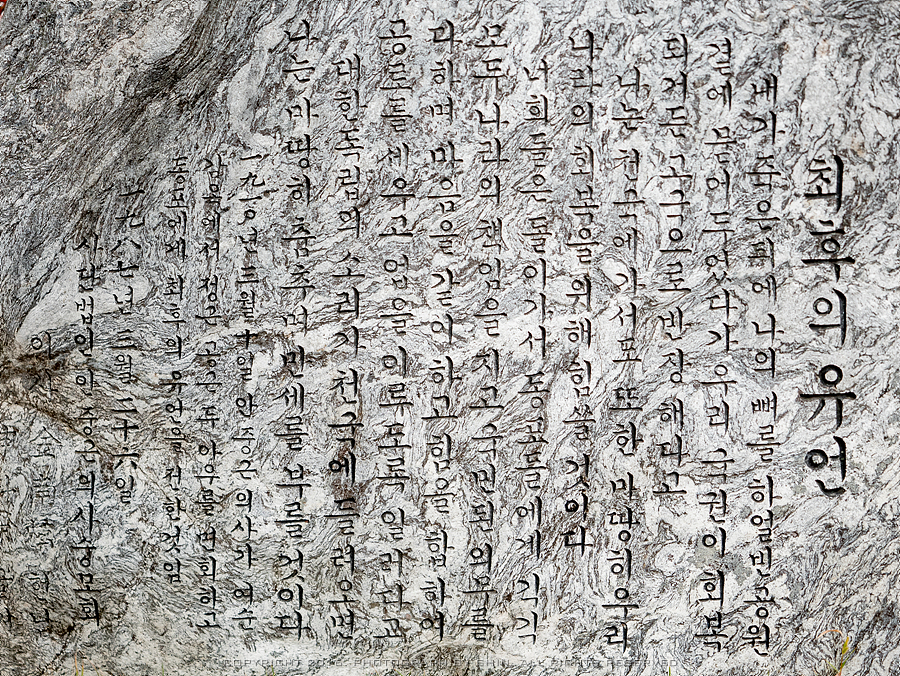 최후의 유언
내가 죽은뒤에 나의 뼈를 하얼빈공원
곁에 묻어두었다가 우리 국권이 회복
되거든 고국으로 반장해다고
나는 천국에 가서도 또한 마땅히 우리
나라의 회복을 위해 힘쓸 것이다
너희들은 돌아가서 동포들에게 각각
모두 나라의 책임을 지고 국민된 의무를
다하며 마음을 같이하고 힘을 합하여
공로를 세우고 업을 이루도록 일러다고
대한독립의 소리가 천국에 들려오면
나는 마땅히 춤추며 만세를 부를 것이다
一九一0년 三월 十일 안중근 의사가 여순
감옥에서 정근 공근 두 아우를 면회하고
동포에게 최후의 유언을 전한것임
一九八七년 三월 二十六일
사단법인 안중근의사숭모회
이사
COPYRIGHT ALL RIGHTS RESERVED